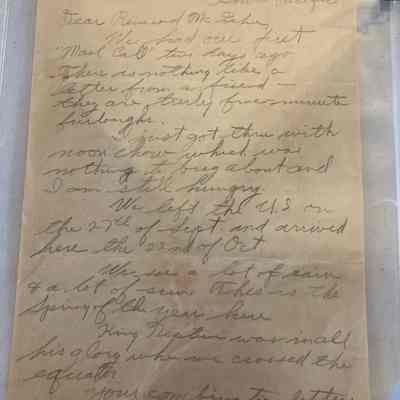 Dear Reverend McGehee,
We had our first
"Mail Call" two days ago
There is nothing like a
letter from a friend –
they are truly five minute
furloughs.
I just got thru with
noon chow which was
nothing to brag about and
I am still hungry.
We left the U.S on
the 27th of Sept. and arrived
here the 22nd of Oct
We see a lot of rain
& a lot of sun this is the
Spring of the year here
King Neptune was in all
his glory when we crossed the
equator
Your combination letter